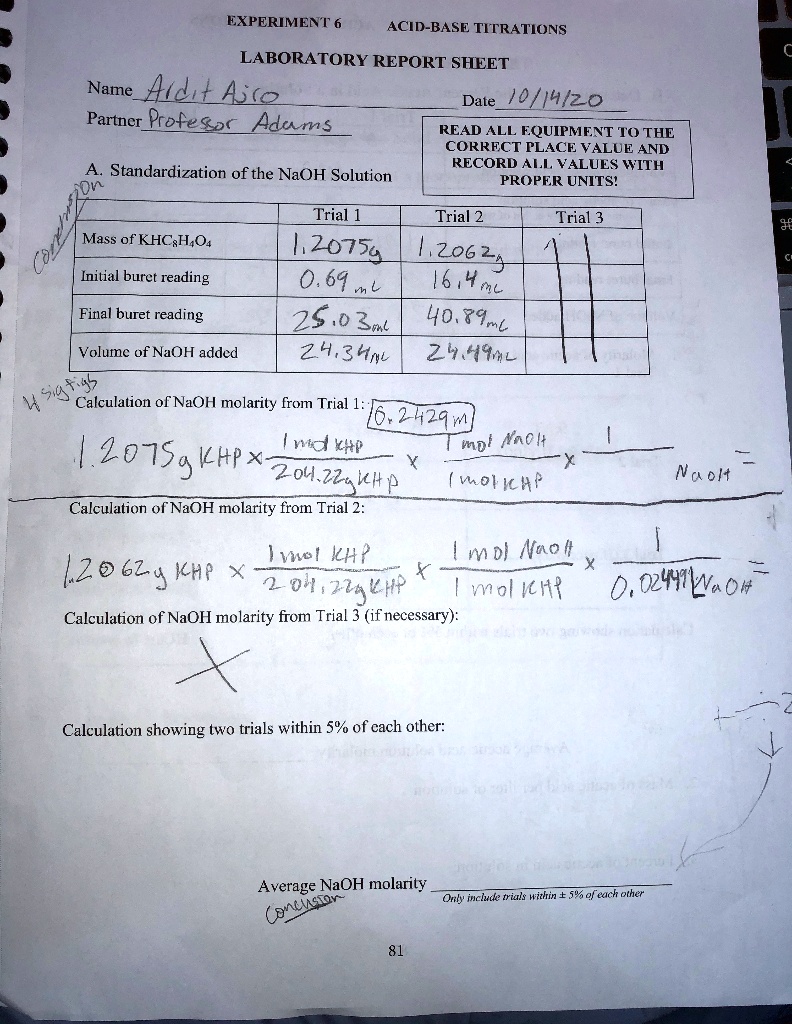 EXPERIMENT 6 ACID-BASE TITRATIONS
LABORATORY REPORT SHEET
Name Ardit Ajro Date 10/14/20
Partner Professor Adams
READ ALL EQUIPMENT TO THE
CORRECT PLACE VALUE AND
RECORD ALL VALUES WITH
PROPER UNITS!
A. Standardization of the NaOH Solution
Conclusion
Trial 1 Trial 2 Trial 3
Mass of KHC₈H₄O₄ 1.2075g 1.2062g
Initial buret reading 0.69 mL 16.4 mL
Final buret reading 25.03 mL 40.89 mL
Volume of NaOH added 24.34 mL 24.49 mL
4 sig figs
Calculation of NaOH molarity from Trial 1: 0.2429 m
1.2075g KHP x 1 mol KHP / 204.22g KHP x 1 mol NaOH / 1 mol KHP x 1 / NaOH =
Calculation of NaOH molarity from Trial 2:
1.2062g KHP x 1 mol KHP / 204.22g KHP x 1 mol NaOH / 1 mol KHP x 1 / 0.02449L NaOH =
Calculation of NaOH molarity from Trial 3 (if necessary):
X
Calculation showing two trials within 5% of each other:
+ ÷ 2
Average NaOH molarity
Only include trials within ± 5% of each other
Conclusion
81